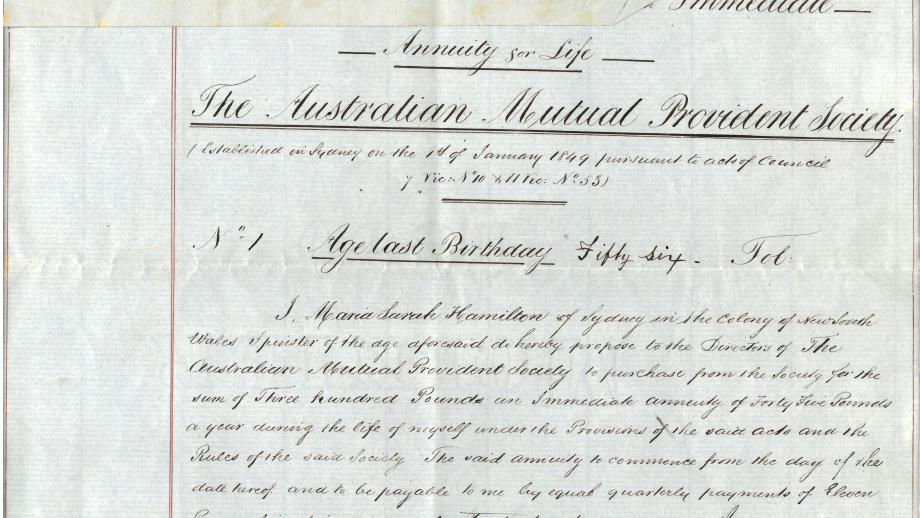 Immediate
Annuity for Life
The Australian Mutual Provident Society.
(Established in Sydney on the 1st of January 1849 pursuant to act of Council
7 Vic: No 10 & 11 Vic: No 53)
No. 1 Age last Birthday Fifty six - Tol:
I, Maria Sarah Hamilton of Sydney in the Colony of New South
Wales Spinster of the age aforesaid do hereby propose to the Directors of The
Australian Mutual Provident Society to purchase from the Society for the
sum of Three hundred Pounds an Immediate annuity of Forty Five Pounds
a year during the life of myself under the Provisions of the said acts and the
Rules of the said Society The said annuity to commence from the day of the
date hereof and to be payable to me by equal quarterly payments of Eleven